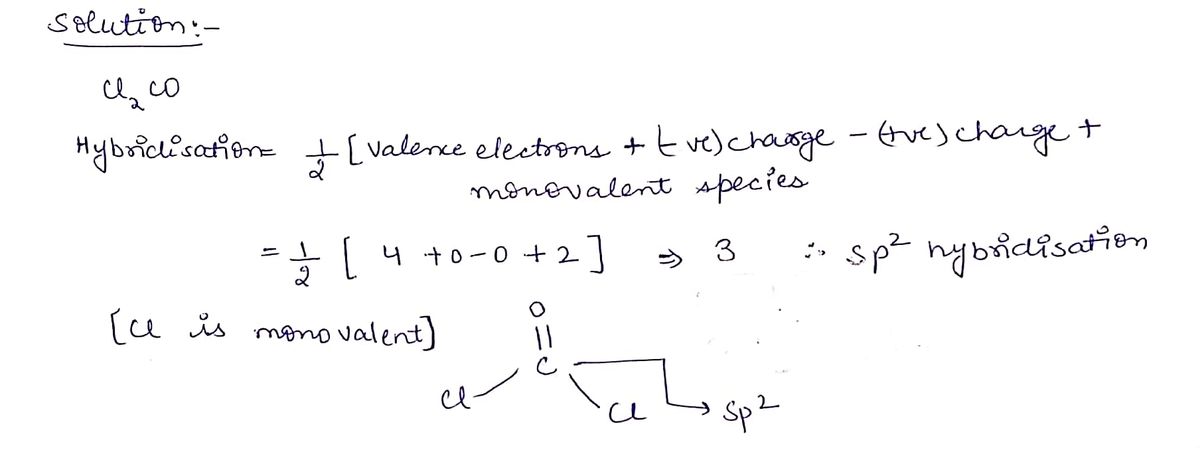 Solution:-
Cl₂CO
Hybridisation = 1/2 [valence electrons + (-ve) charge - (+ve) charge +
monovalent species
= 1/2 [ 4 + 0 - 0 + 2 ] ⇒ 3 ∴ sp² hybridisation
[Cl is monovalent]
O
||
C
Cl Cl → sp²